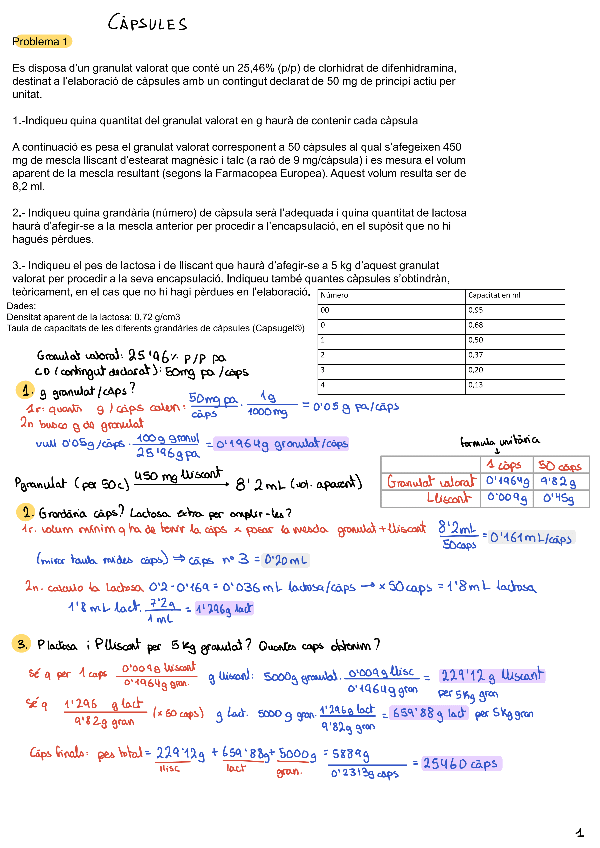 CÀPSULES
Problema 1
Es disposa d'un granulat valorat que conté un 25,46% (p/p) de clorhidrat de difenhidramina,
destinat a l'elaboració de càpsules amb un contingut declarat de 50 mg de principi actiu per
unitat.
1.-Indiqueu quina quantitat del granulat valorat en g haurà de contenir cada càpsula
A continuació es pesa el granulat valorat corresponent a 50 càpsules al qual s'afegeixen 450
mg de mescla lliscant d'estearat magnèsic i talc (a raó de 9 mg/càpsula) i es mesura el volum
aparent de la mescla resultant (segons la Farmacopea Europea). Aquest volum resulta ser de
8,2 ml.
2.- Indiqueu quina grandària (número) de càpsula serà l'adequada i quina quantitat de lactosa
haurà d'afegir-se a la mescla anterior per procedir a l'encapsulació, en el supòsit que no hi
hagués pèrdues.
3.- Indiqueu el pes de lactosa i de lliscant que haurà d'afegir-se a 5 kg d'aquest granulat
valorat per procedir a la seva encapsulació. Indiqueu també quantes càpsules s'obtindràn,
teòricament, en el cas que no hi hagi pèrdues en l'elaboració.
Dades:
Densitat aparent de la lactosa: 0,72 g/cm3
Taula de capacitats de les diferents grandàries de càpsules (Capsugel®)
Número Capacitat en ml
00 0,95
0 0,68
1 0,50
2 0,37
3 0,20
4 0,13
Granulat valorat: 25'46% p/p pa
CD (contingut declarat): 50mg pa/càps
1. g granulat/càps?
1r: quants g/càps calen: 50mg pa/càps · 1g/1000mg = 0'05 g pa/càps
2n busco g de granulat
vull 0'05g/càps · 100g granul/25'46g pa = 0'1964g granulat/càps
Pgranulat (per 50c) 450 mg lliscant → 8'2 mL (vol. aparent)
formula unitària
↓
1 càps 50 caps
Granulat valorat 0'1964g 9'82g
Lliscant 0'009g 0'45g
2. Grandària càps? Lactosa extra per omplir-les?
1r. volum mínim q ha de tenir la càps x posar la mescla granulat+lliscant 8'2mL/50caps = 0'164mL/càps
(mirar taula mides càps) ⇒ càps nº 3 = 0'20mL
2n. calculo la lactosa 0'2-0'164 = 0'036 mL lactosa/càps → x 50 caps = 1'8 mL lactosa
1'8 mL lact. 7'2g/1 mL = 1'296g lact
3. P lactosa i P lliscant per 5Kg granulat? Quantes caps obtenim?
Sé q per 1 caps 0'009g lliscant/0'1964g gran. g lliscant: 5000g granulat. 0'009g llisc/0'1964g gran = 229'12g lliscant per 5Kg gran
Sé q 1'296 g lact/9'82g gran (x 50 caps) g lact. 5000 g gran. 1'296g lact/9'82g gran = 659'88g lact per 5Kg gran
Càps finals: pes total = 229'12g + 659'88g + 5000g = 5889g/0'2313g caps = 25460 càps
llisc lact gran.
1